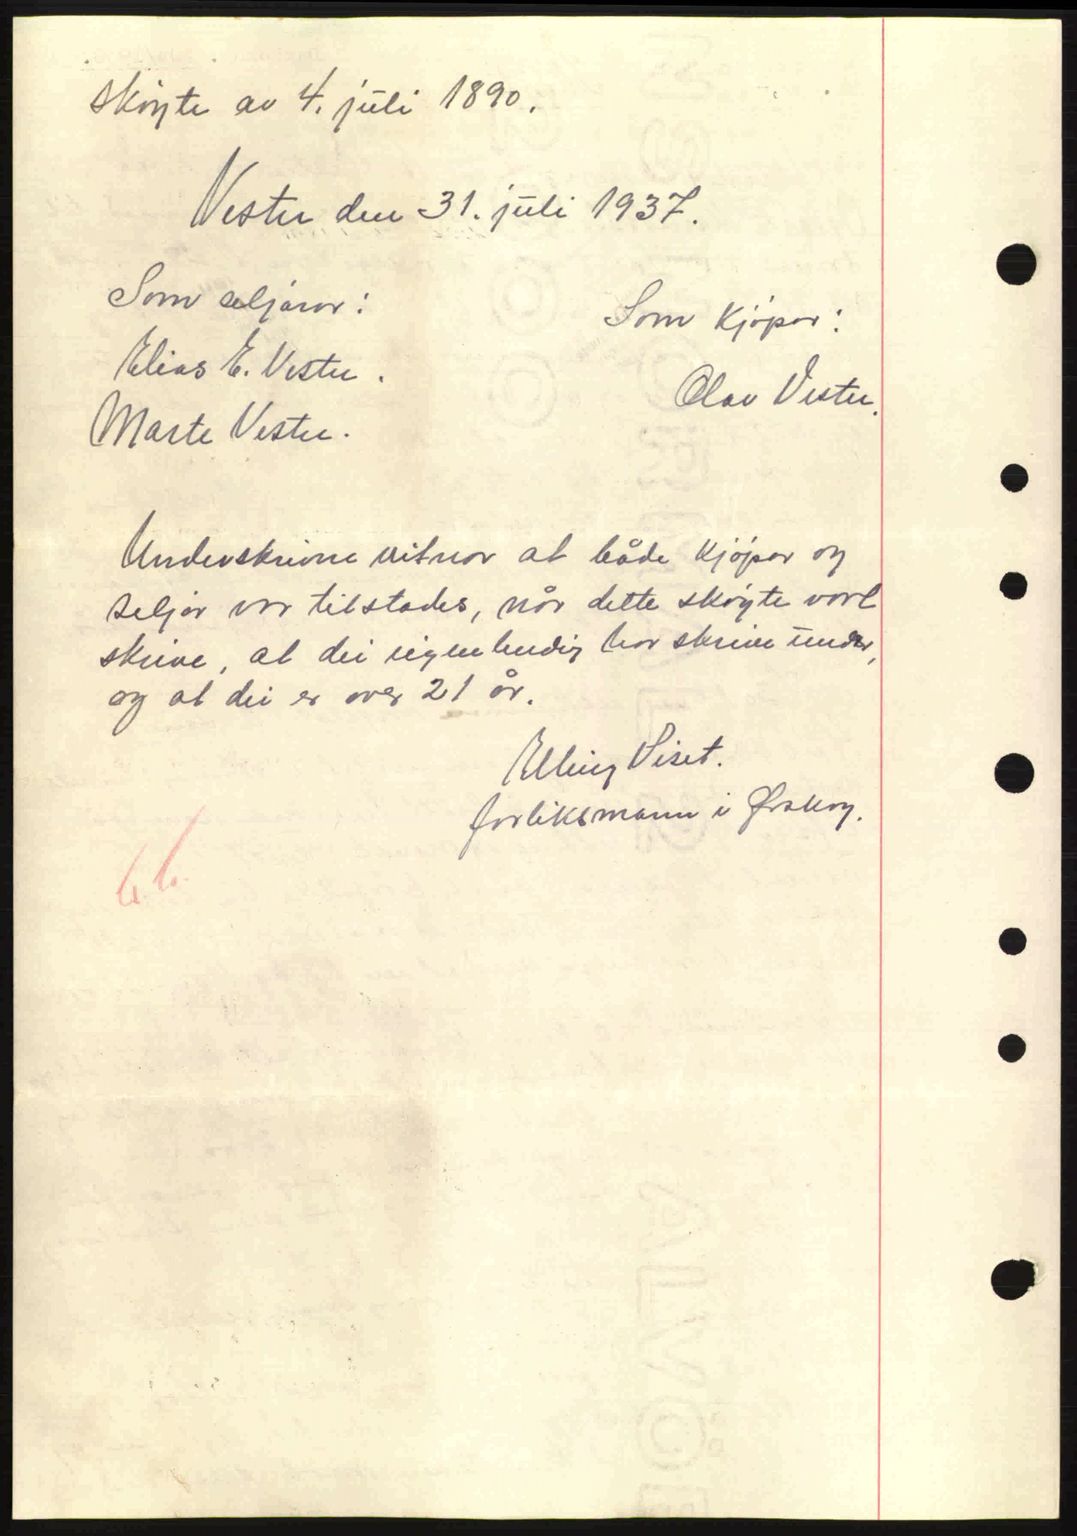 skøyte av 4. juli 1890.
Vestre den 31. juli 1937.
Som seljarar:
Elias E. Vestre.
Marte Vestre.
Som kjøpar:
Olav Vestre.
Underskrivne vitnar at både kjøpar og
seljar var tilstades, når dette skøyte vart
skrive, at dei eigenhendig har skrive under,
og at dei er over 21 år.
Elling Viset.
forliksmann i Ørskog.